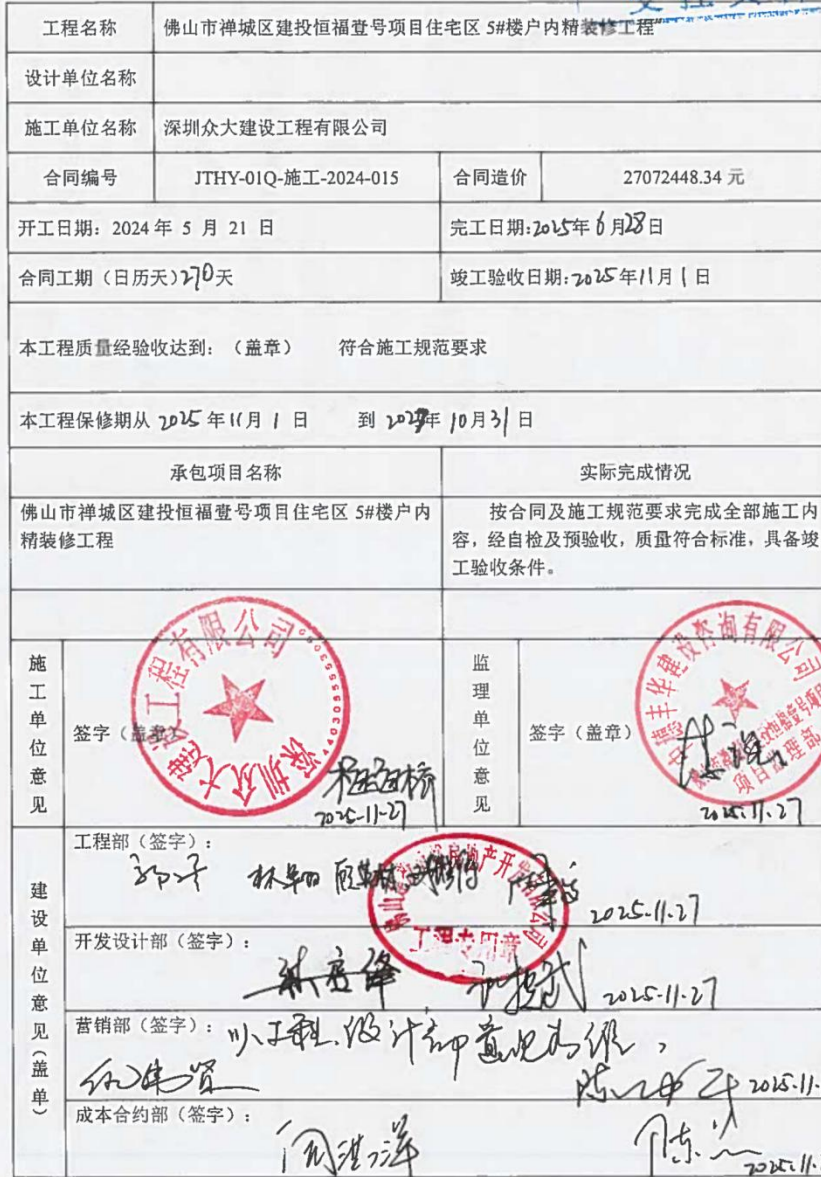 工程名称 佛山市禅城区建投恒福壹号项目住宅区 5#楼户内精装修工程"
设计单位名称
施工单位名称 深圳众大建设工程有限公司
合同编号 JTHY-01Q-施工-2024-015 合同造价 27072448.34 元
开工日期: 2024 年 5 月 21 日 完工日期:2025年6月28日
合同工期（日历天）270天 竣工验收日期:2025年11月1日
本工程质量经验收达到: （盖章） 符合施工规范要求
本工程保修期从 2025年11月1日 到 2027年10月31日
承包项目名称 实际完成情况
佛山市禅城区建投恒福壹号项目住宅区 5#楼户内
精装修工程
按合同及施工规范要求完成全部施工内
容，经自检及预验收，质量符合标准，具备竣
工验收条件。
施工单位意见
签字（盖章）
深圳众大建设工程有限公司
2025-11-27
监理单位意见
签字（盖章）
中德丰华建设咨询有限公司
项目监理部
2025.11.27
建设单位意见（盖单）
工程部（签字）:
2025-11-27
工程专用章
开发设计部（签字）:
2025-11-27
营销部（签字）: 以工程、设计部意见为准，
2025.11.
成本合约部（签字）:
2025.11.